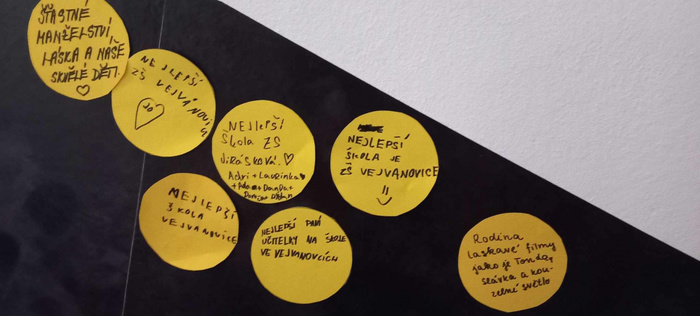 ŠŤASTNÉ
MANŽELSTVÍ,
LÁSKA A NAŠE
SKVĚLÉ DĚTI.
NEJLEPŠÍ
ZŠ VEJVANOVICE
JO
NEJLEPŠÍ
Škola ZŠ
JIRÁSKOVA.
Adri + Laurinka
+ Adam + Danda +
NEJLEPŠÍ
ŠKOLA JE
ZŠ VEJVANOVICE
!!
NEJLEPŠÍ
ŠKOLA
VEJVANOVICE
NEJLEPŠÍ PANÍ
UČITELKY NA ŠKOLE
VE VEJVANOVCÍCH
Rodina
laskavé filmy
jako je Tonda,
slávka a kou-
zelné světlo